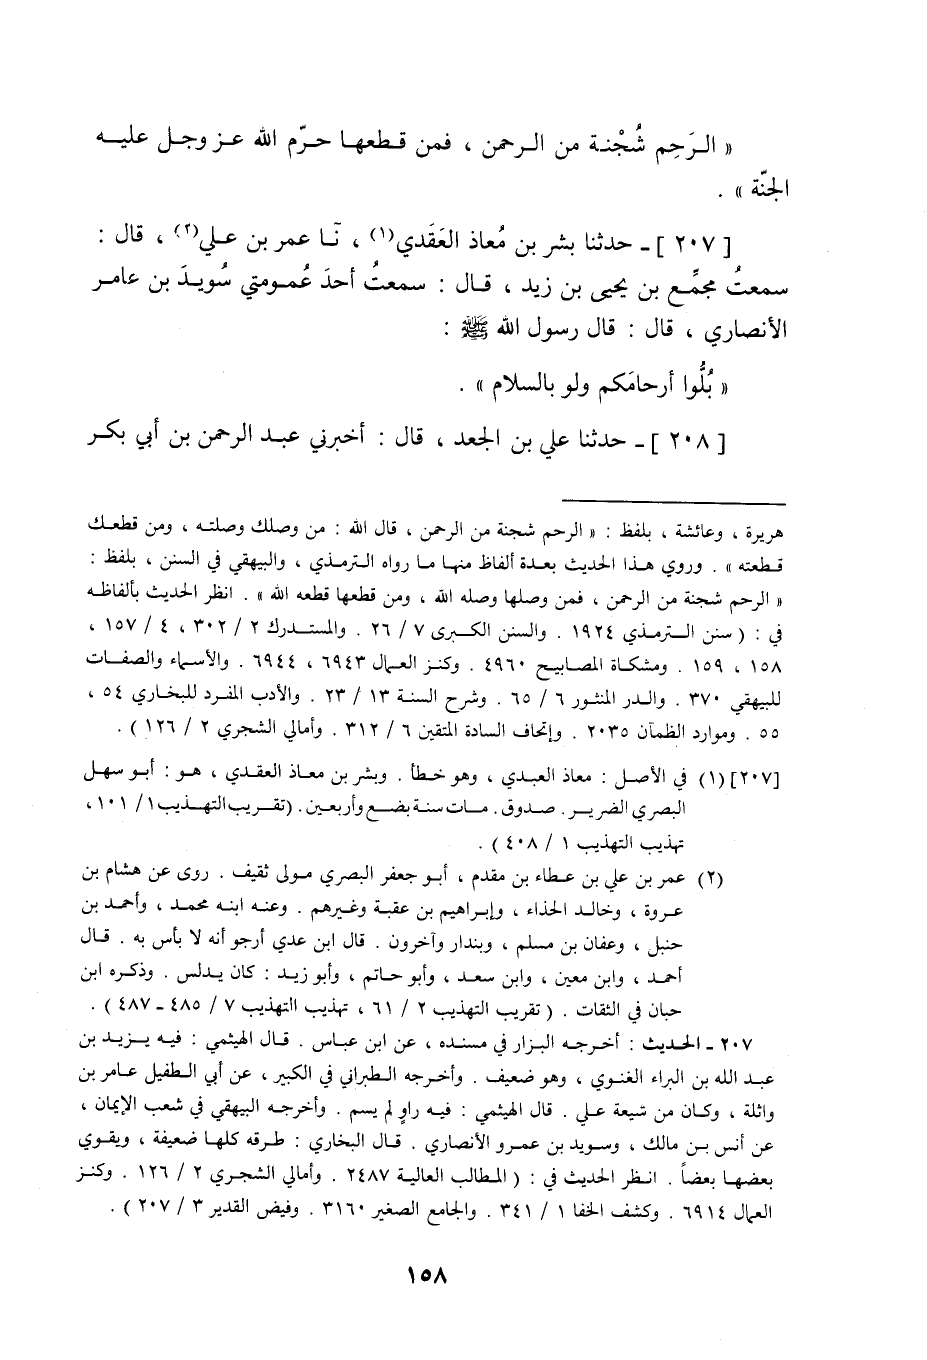 « الـرَحِم شُجْنـة من الـرحمن ، فمن قـطعهـا حـرّم الله عـز وجـل عليـه
الجنّة » .
[ ٢٠٧ ] ـ حدثنا بشر بن مُعاذ العَقَدي(١) ، نَـا عمر بن عـلي(٢) ، قال :
سمعتُ مجمِّع بن يحيى بن زيد ، قـال : سمعتُ أحدَ عُمـومتي سُويـدَ بن عامـر
الأنصاري ، قال : قال رسول الله ﷺ :
« بُلُّوا أرحامَكم ولو بالسلام » .
[ ٢٠٨ ] ـ حدثنا علي بن الجعد ، قال : أخبرني عبـد الرحمن بن أبي بكـر
هريرة ، وعائشة ، بلفظ : « الرحم شجنة من الرحمن ، قال الله : من وصلك وصلتـه ، ومن قطعـك
قـطعته » . وروي هـذا الحديث بعـدة ألفاظ منهـا مـا رواه الترمـذي ، والبيهقي في السنن ، بلفظ :
« الرحم شجنة من الرحمن ، فمن وصلها وصله الله ، ومن قطعها قطعه الله » . انظر الحديث بألفاظـه
في : ( سنن التـرمذي ١٩٢٤ . والسنن الكبـرى ٧ / ٢٦ . والمستـدرك ٢ / ٣٠٢ ، ٤ / ١٥٧ ،
١٥٨ ، ١٥٩ . ومشكاة المصابيح ٤٩٦٠ . وكنز العمال ٦٩٤٣ ، ٦٩٤٤ . والأسماء والصفـات
للبيهقي ٣٧٠ . والدر المنثور ٦ / ٦٥ . وشرح السنة ١٣ / ٢٣ . والأدب المفرد للبخاري ٥٤ ،
٥٥ . وموارد الظمآن ٢٠٣٥ . وإتحاف السادة المتقين ٦ / ٣١٢ . وأمالي الشجري ٢ / ١٢٦ ) .
[٢٠٧] (١) في الأصل : معاذ العبدي ، وهو خطأ . وبشر بن معاذ العقدي ، هو : أبـو سهـل
البصري الضريـر . صـدوق . مـات سنة بضـع وأربعين . (تقـريب التهـذيب ١ / ١٠١ ،
تهذيب التهذيب ١ / ٤٠٨ ) .
(٢) عمر بن علي بن عـطاء بن مقدم ، أبـو جعفر البصري مـولى ثقيف . روى عن هشام بن
عـروة ، وخالـد الحذاء ، وإبراهيم بن عقبة وغيرهم . وعنه ابنه محمـد ، وأحمـد بن
حنبل ، وعفان بن مسلم ، وبندار وآخرون . قال ابن عدي أرجو أنه لا بأس به . قـال
أحمد ، وابن معين ، وابن سعد ، وأبو حاتم ، وأبو زيـد : كان يدلس . وذكـره ابن
حبان في الثقات . ( تقريب التهذيب ٢ / ٦١ ، تهذيب التهذيب ٧ / ٤٨٥ ـ ٤٨٧ ) .
٢٠٧ ـ الحديث : أخرجه البزار في مسنده ، عن ابن عباس . قـال الهيثمي : فيـه يـزيـد بن
عبـد الله بن البراء الغنـوي ، وهو ضعيف . وأخـرجه الطبراني في الكبير ، عن أبي الطفيل عـامر بن
واثلة ، وكان من شيعة علي . قال الهيثمي : فيه راوٍ لم يسم . وأخرجـه البيهقي في شعب الإيمان ،
عن أنس بـن مالك ، وسويـد بن عمـرو الأنصاري . قـال البخاري : طـرقه كلهـا ضعيفة ، ويقـوي
بعضهـا بعضاً . انـظر الحديث في : ( المطالب العالية ٢٤٨٧ . وأمالي الشجري ٢ / ١٢٦ . وكنـز
العمال ٦٩١٤ . وكشف الخفا ١ / ٣٤١ . والجامع الصغير ٣١٦٠ . وفيض القدير ٣ / ٢٠٧ ) .
١٥٨